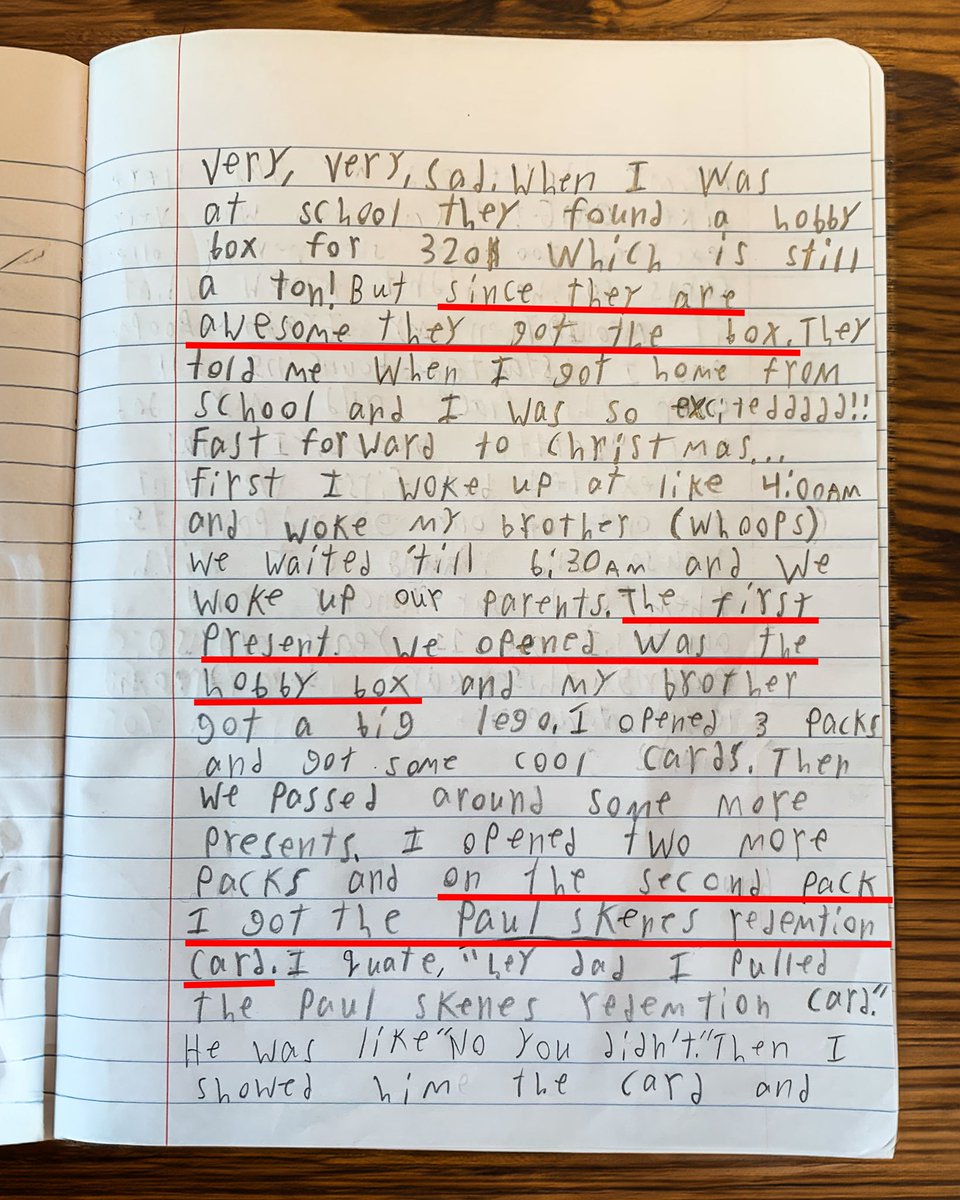 very, very, sad. When I was
at school they found a hobby
box for 320$ which is still
a ton! But since they are
awesome they got the box. They
told me when I got home from
school and I was so excitedddd!!
Fast forward to christmas...
first I woke up at like 4:00AM
and woke my brother (whoops)
we waited 'till 6:30AM and we
woke up our parents. The first
present. we opened was the
hobby box and my brother
got a big lego. I opened 3 packs
and got some cool cards. Then
we passed around some more
presents. I opened two more
packs and on the second pack
I got the Paul skenes redemtion
card. I quate, "hey dad I pulled
the Paul skenes redemtion card."
He was like "No you didn't." Then I
showed hime the card and